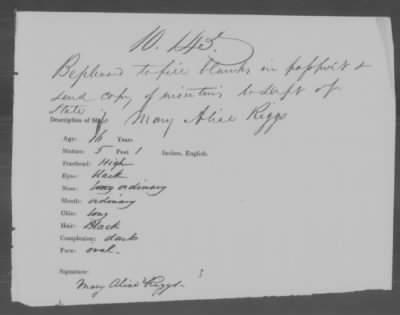 10.143.
Be pleased to fill blanks in passport &
send copy of insertions to Dept of
State
Description of Miss Mary Alice Riggs
Age: 16 Years
Stature: 5 Feet 1 Inches, English.
Forehead: High
Eyes: black
Nose: ordinary
Mouth: ordinary
Chin: long
Hair: Black
Complexion: dark
Face: oval
Signature:
Mary Alice Riggs